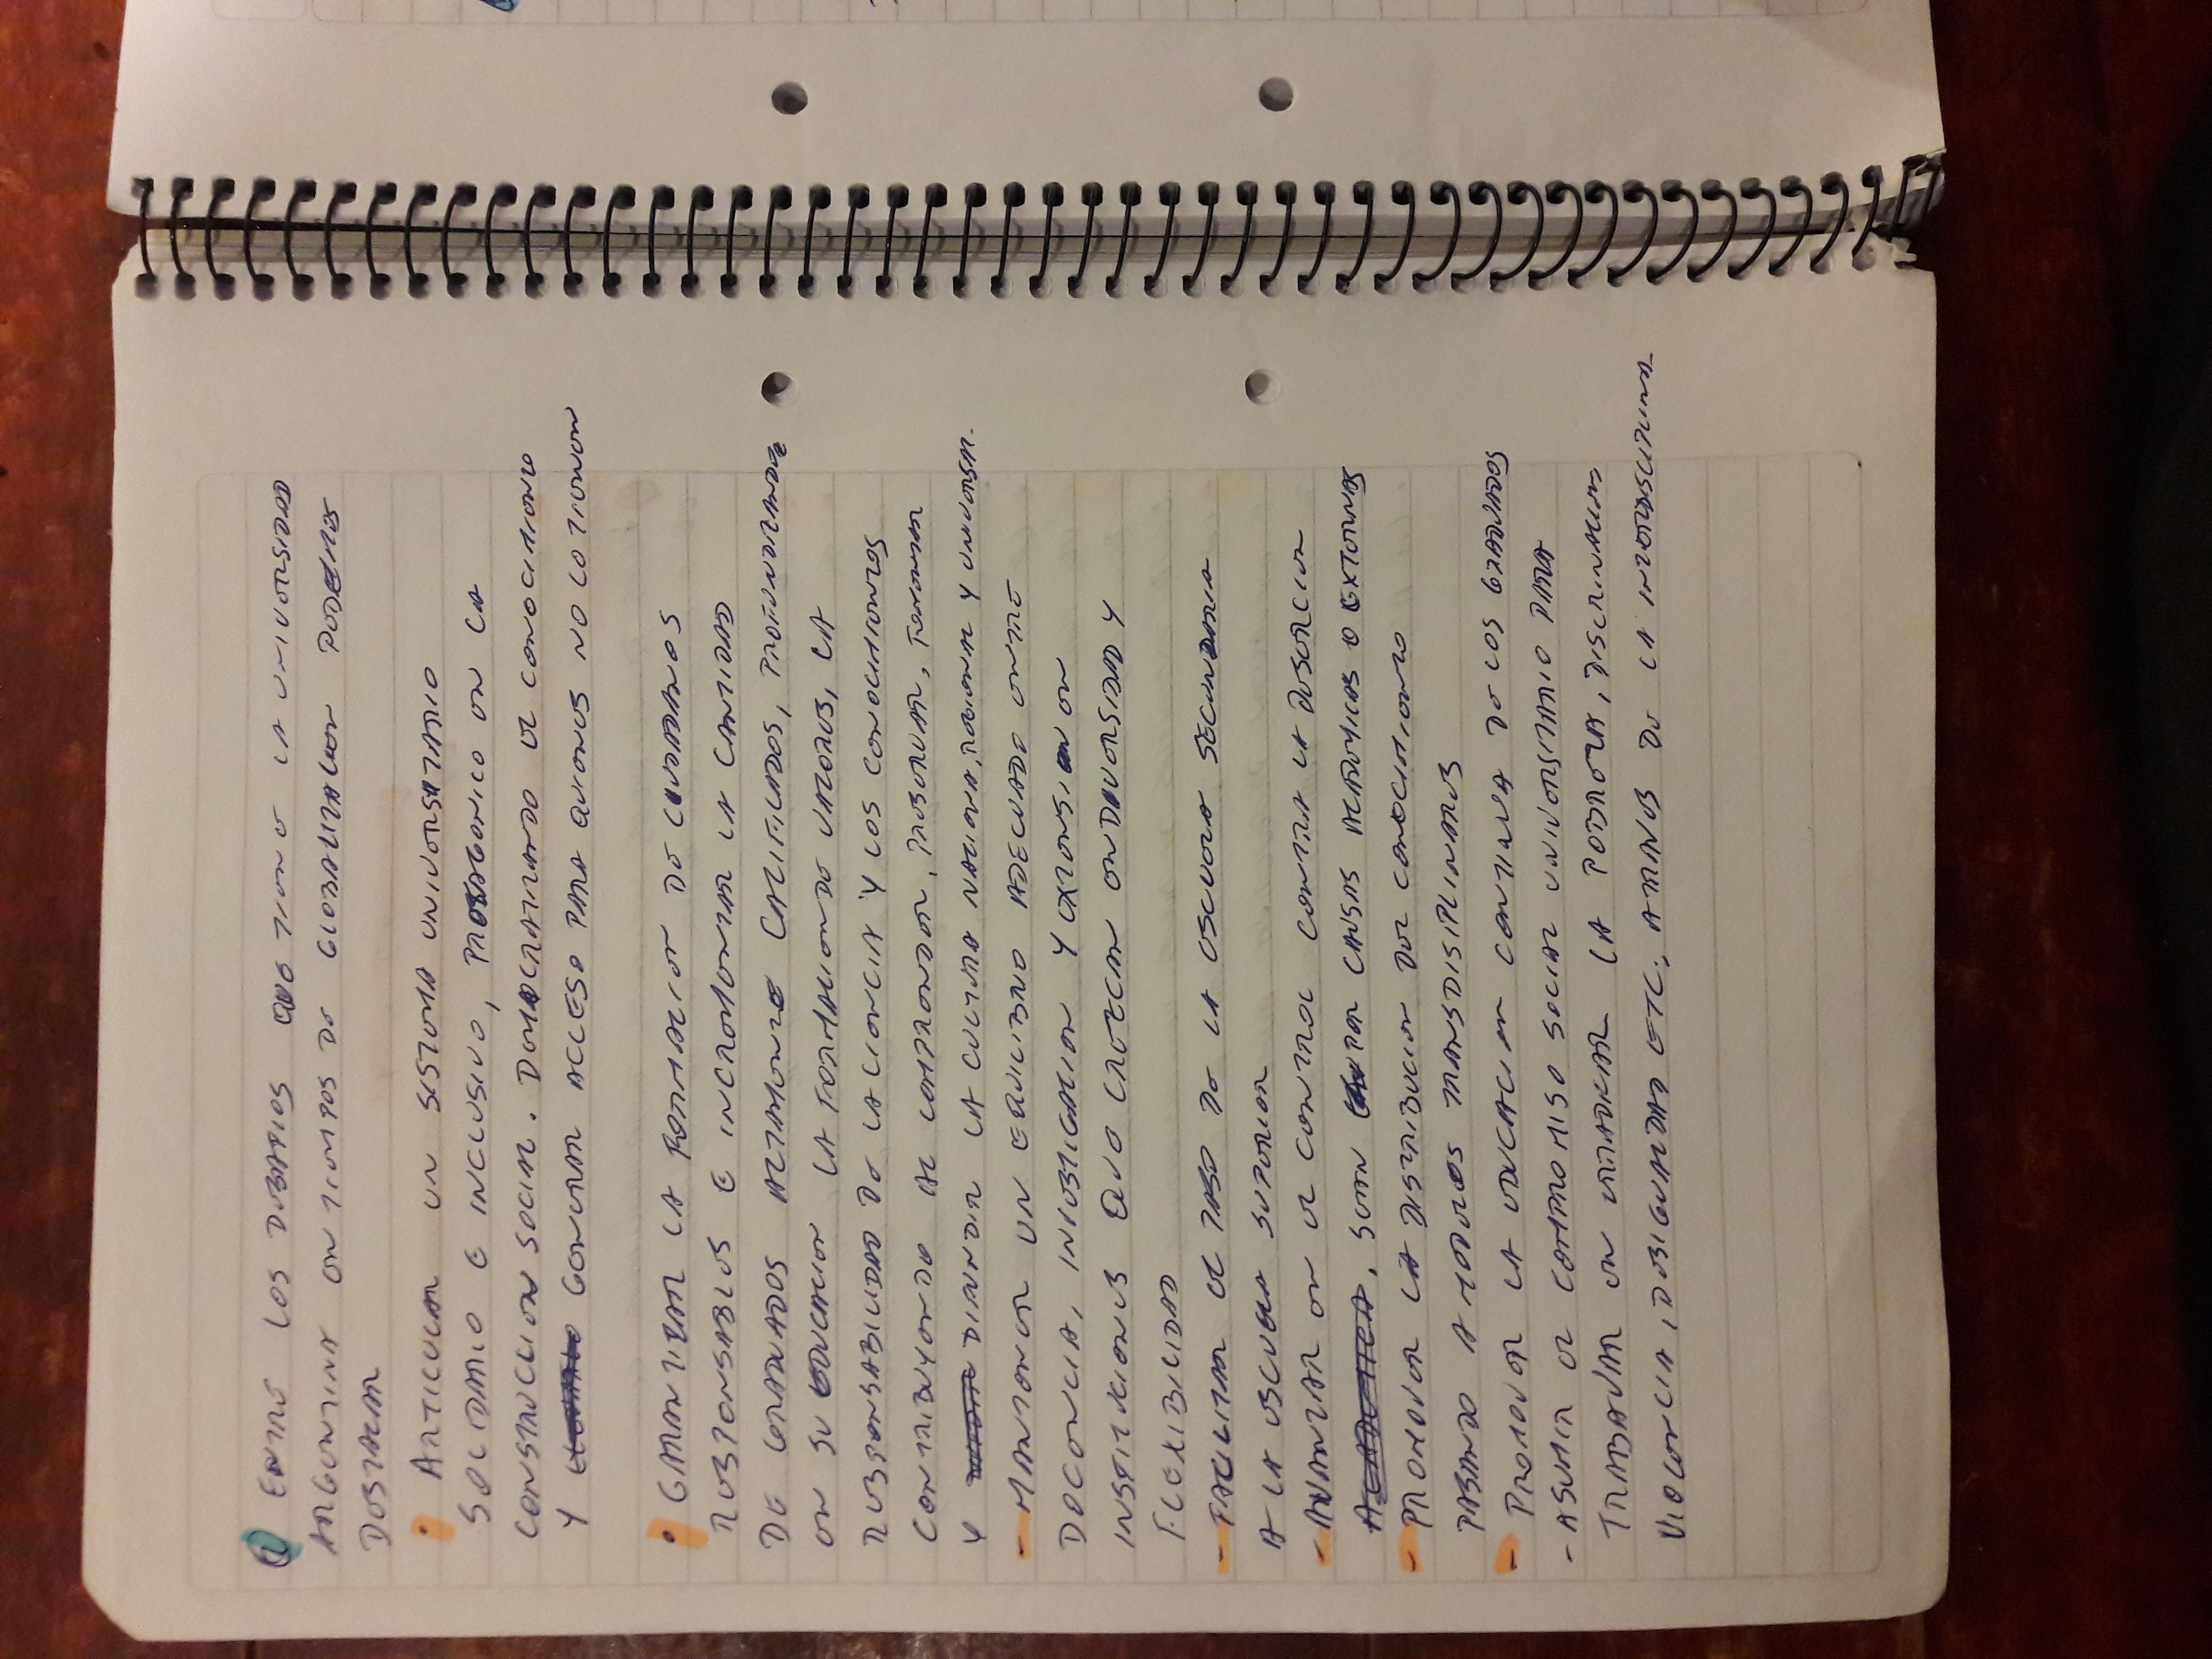 ① ENTRE LOS DESAFIOS QUE TIENE LA UNIVERSIDAD
ARGENTINA EN TIEMPOS DE GLOBALIZACION PODEMOS
DESTACAR
• ARTICULAR UN SISTEMA UNIVERSITARIO
SOLIDARIO E INCLUSIVO, PROTAGONICO EN LA
CONSTRUCCION SOCIAL. DEMOCRATIZANDO EL CONOCIMIENTO
Y GENERAR ACCESO PARA QUIENES NO LO TIENEN
• GARANTIZAR LA FORMACION DE CIUDADANOS
RESPONSABLES E INCREMENTAR LA CANTIDAD
DE GRADUADOS ALTAMENTE CALIFICADOS, PROFUNDIZANDO
EN SU EDUCACION LA FORMACION DE VALORES, LA
RESPONSABILIDAD DE LA CIENCIA Y LOS CONOCIMIENTOS
CONTRIBUYENDO AL COMPRENDER, PRESERVAR, FOMENTAR
Y DIFUNDIR LA CULTURA NACIONA, REGIONAL Y UNIVERSAL.
- MANTENER UN EQUILIBRIO ADECUADO ENTRE
DOCENCIA, INVESTIGACION Y EXTENSION EN
INSTITUCIONES QUE CREZCAN EN DIVERSIDAD Y
FLEXIBILIDAD
- FACILITAR EL PASO DE LA ESCUELA SECUNDARIA
A LA ESCUELA SUPERIOR
- AVANZAR EN EL CONTROL CONTRA LA DESERCION
ACADEMICA, SEAN POR CAUSAS ACADEMICAS O EXTERNAS
- PROMOVER LA DISTRIBUCION DEL CONOCIMIENTO
PASANDO A MODELOS TRANSDISIPLINARES
- PROMOVER LA EDUCACION CONTINUA DE LOS GRADUADOS
- ASUMIR EL COMPROMISO SOCIAL UNIVERSITARIO PARA
TRABAJAR EN ERRADICAR LA POBREZA, DISCRINACION
VIOLENCIA, DESIGUALDAD ETC., A TRAVES DE LA INTERDISCIPLINA